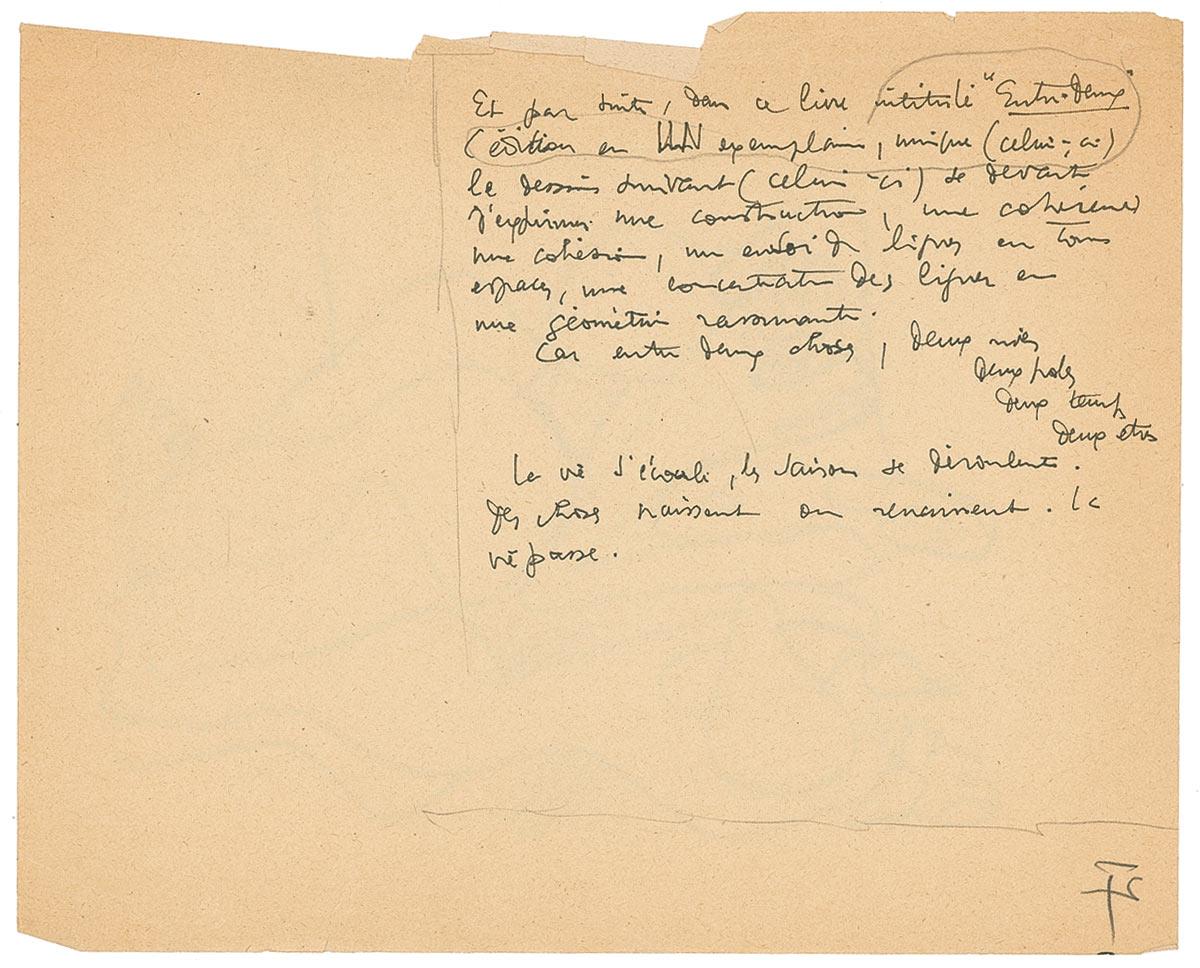 Et par suite, dans ce livre intitulé "Entre-Deux"
(édition en UN exemplaire, unique (celui-ci)
le dessin suivant (celui-ci) se devait
d'exprimer une construction, une cohérence
une cohésion, un envoi de lignes en tous
espaces, une concentration des lignes en
une géométrie rayonnante.
Car entre deux choses, deux vies
deux poles
deux temps
deux êtres
La vie s'écoule, les saisons se déroulent.
des choses naissent ou renaissent. la
vie passe.